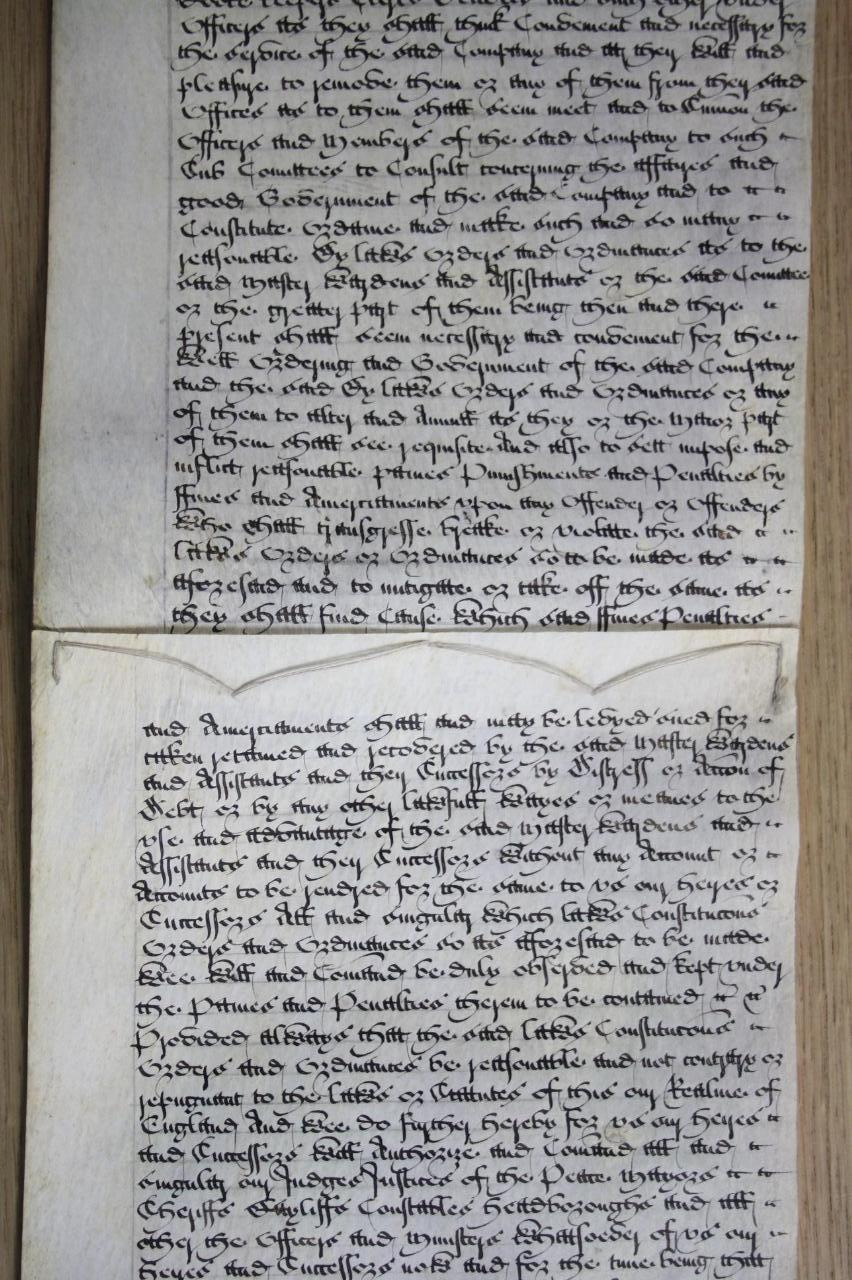 Officers as they shall think Convenient and necessary for
the service of the said Company and att their will and
pleasure to remove them or any of them from their said
Offices as to them shall seem meet and to Sumon the
Officers and Members of the said Company to such
Sub Comittees to Consult concerning the affaires and
good Government of the said Company and to
Constitute Ordaine and make such and so many
reasonable By Lawes Orders and Ordinances as to the
said Master Wardens and Assistants or the said Comittee
or the greater part of them being then and there
present shall seem necessary and convenient for the
well Ordering and Government of the said Company
and the said By Lawes Orders and Ordinances or any
of them to alter and Annull as they or the Maior part
of them shall see requisite And also to sett impose and
inflict reasonable paines Punishments and Penalties by
ffines and Amerciaments upon any Offender or Offenders
who shall transgresse breake or violate the said
Lawes Orders or Ordinances so to be made as
aforesaid and to mitigate or take off the same as
they shall find Cause Which said ffines Penalties
and Amerciaments shall and may be levyed sued for
taken retained and recovered by the said Master Wardens
and Assistants and their Successors by Distress or Action of
Debt or by any other lawfull wayes or meanes to the
use and advantage of the said Master Wardens and
Assistants and their Successors without any Account or
Accounts to be rendred for the same to us our heires or
Successors All and singular which Lawes Constitucons
Orders and Ordinances so as aforesaid to be made
Wee Will and Comand be duly observed and kept under
the Paines and Penalties therein to be contained
Provided alwayes that the said Lawes Constitucons
Orders and Ordinances be reasonable and not contrary or
repugnant to the Lawes or Statutes of this our Realme of
England And Wee do further hereby for us our heires
and Successors Will Authorize and Comand all and
singular our Judges Justices of the Peace Mayors
Sheriffs Bayliffs Constables headboroughs and all
other the Officers and Ministers whatsoever of us our
heires and Successors now and for the time being that